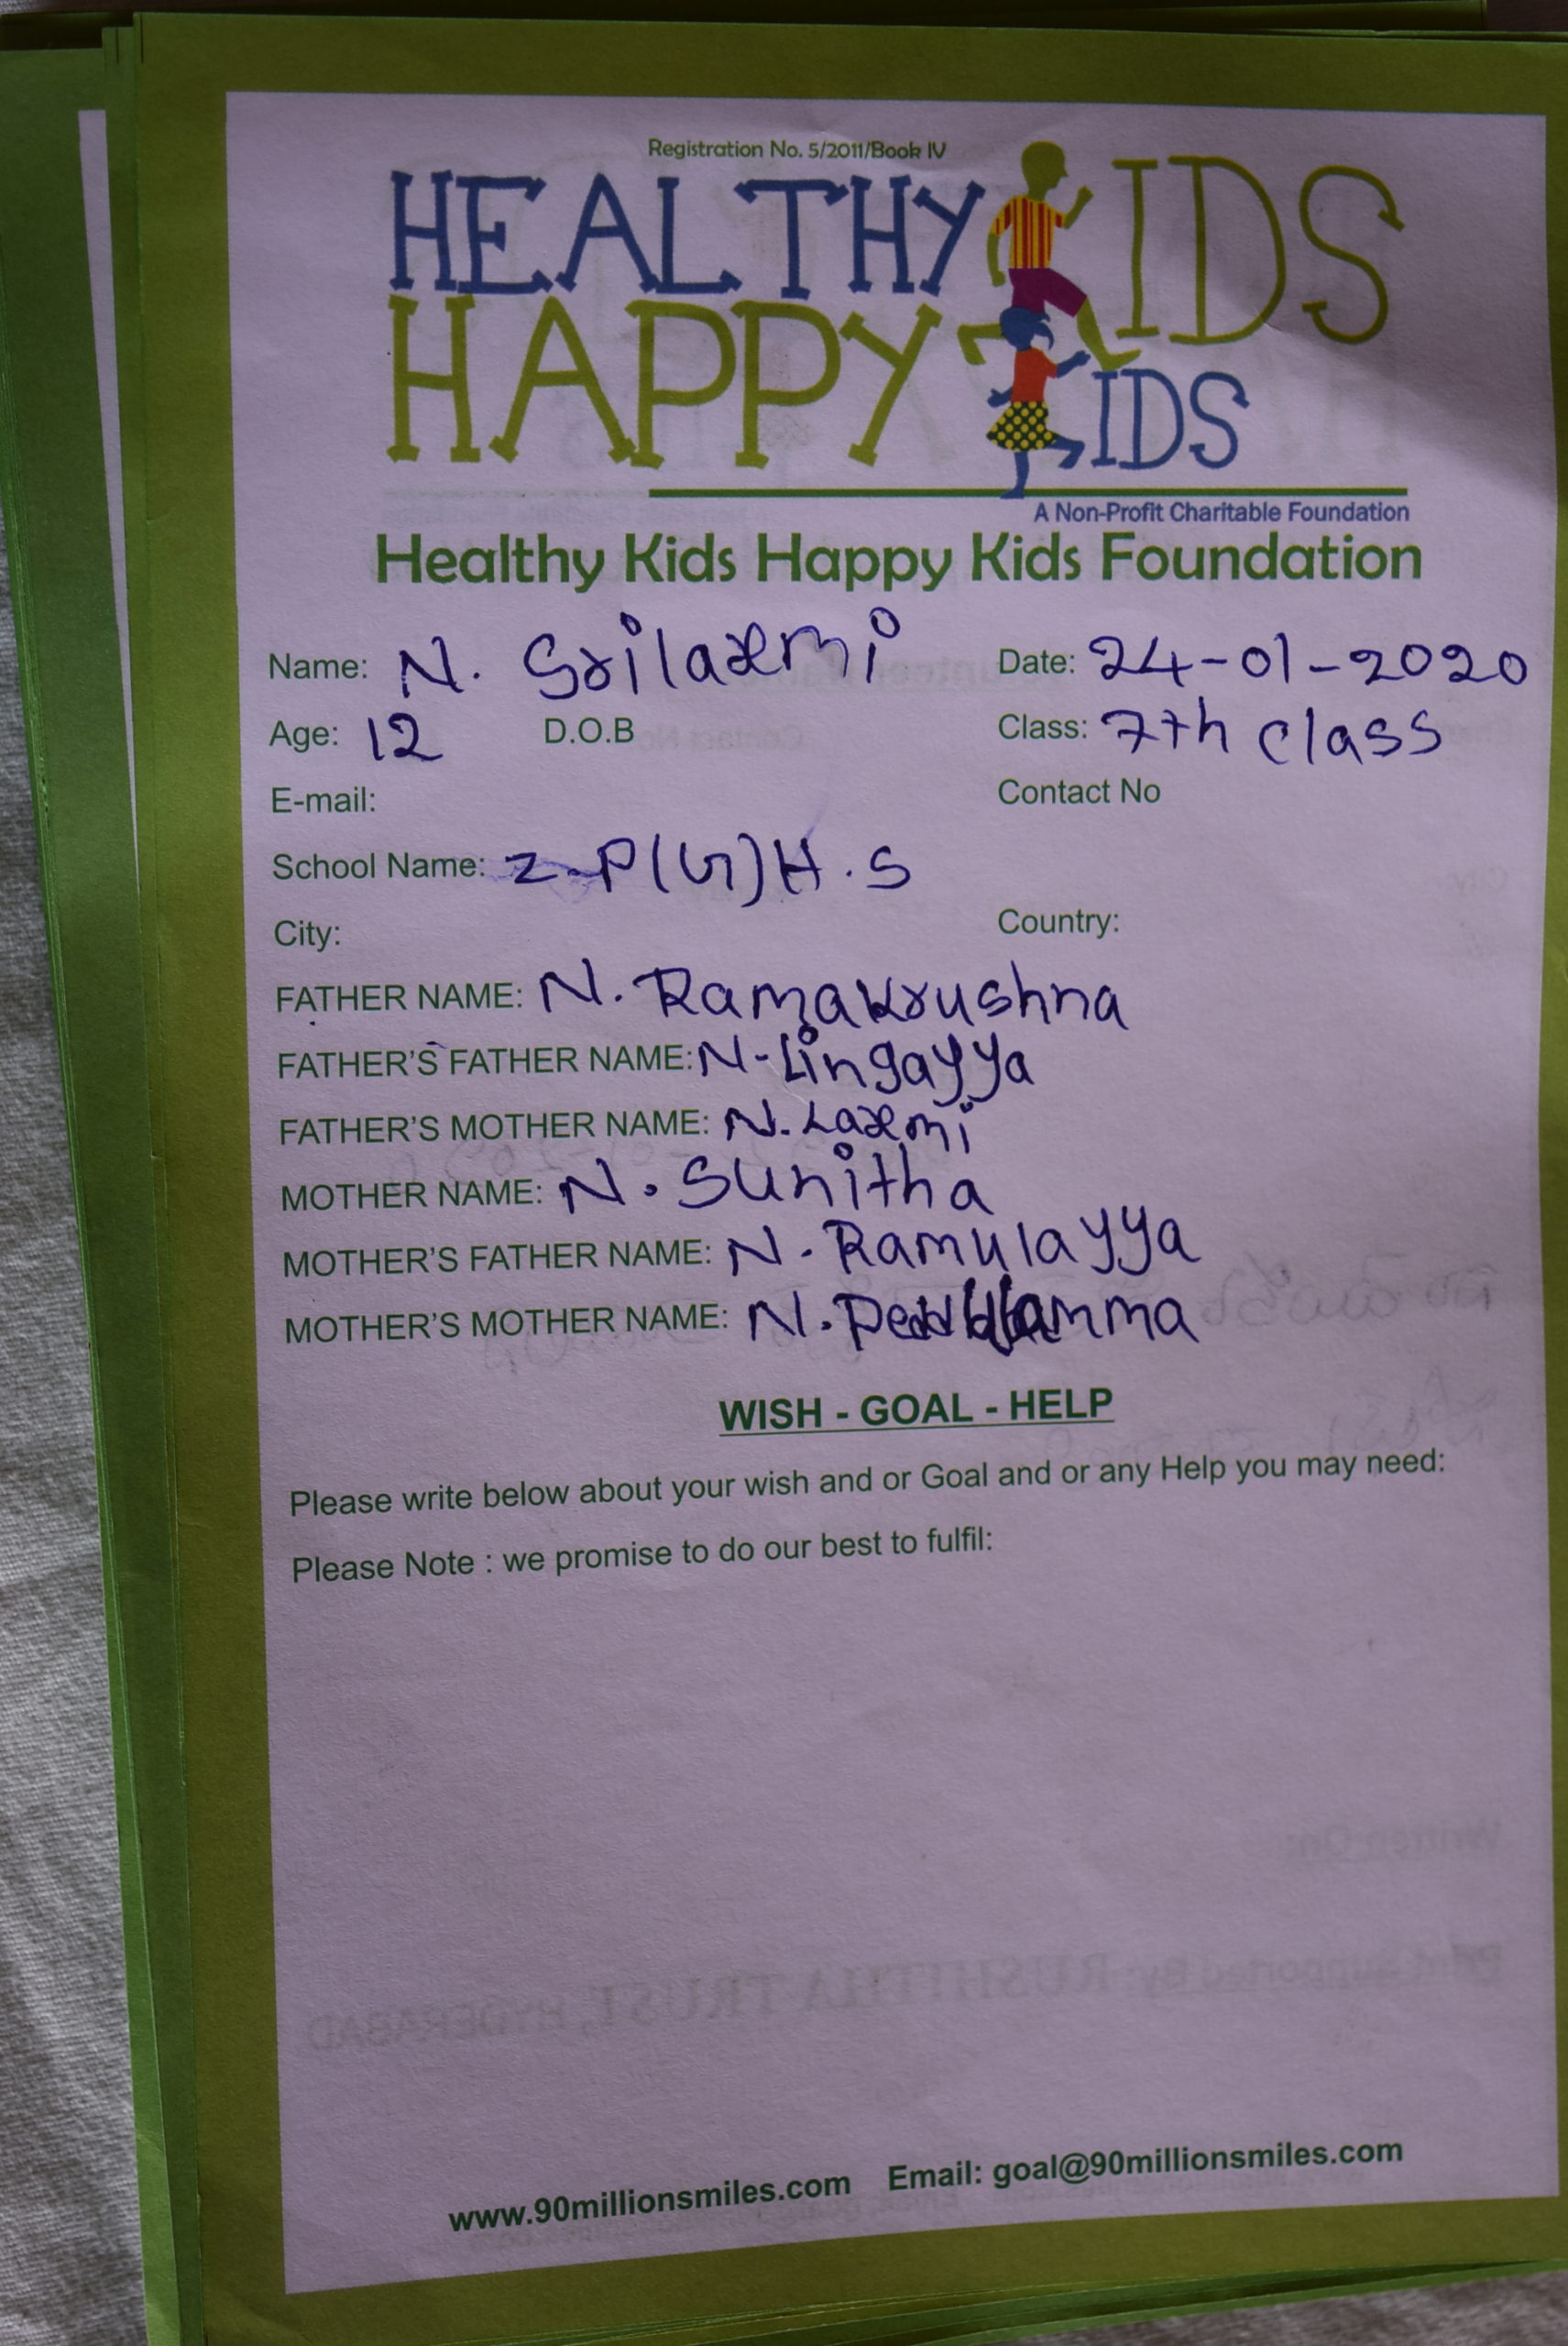 Registration No. 5/2011/Book IV
HEALTHY KIDS
HAPPY KIDS
A Non-Profit Charitable Foundation
Healthy Kids Happy Kids Foundation
Name: N. Srilaxmi Date: 24-01-2020
Age: 12 D.O.B Class: 7th class
E-mail: Contact No
School Name: Z.P(G)H.S
City: Country:
FATHER NAME: N. Ramakrushna
FATHER'S FATHER NAME: N. Lingayya
FATHER'S MOTHER NAME: N. Laxmi
MOTHER NAME: N. Sunitha
MOTHER'S FATHER NAME: N. Ramulayya
MOTHER'S MOTHER NAME: N.
WISH - GOAL - HELP
Please write below about your wish and or Goal and or any Help you may need:
Please Note : we promise to do our best to fulfil:
www.90millionsmiles.com Email: goal@90millionsmiles.com